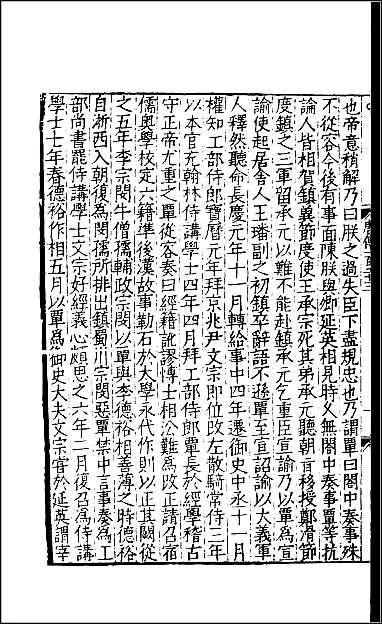 也帝意稍解乃曰朕之過失臣下盡規忠也乃謂覃曰閤中奏事殊
不從容今後有事面陳朕與卿延英相見時久無閤中奏事覃等抗
論人皆相賀鎮冀節度使王承宗死其弟承元聽朝言移授鄭滑節
度鎮之三軍留承元以難不能赴鎮承元乞重臣宣諭乃以覃為宣
諭使起居舍人王璠副之初鎮卒辭語不遜覃至宣詔諭以大義軍
人釋然聽命長慶元年十一月轉給事中四年遷御史中丞十一月
權知工部侍郎寶曆元年拜京兆尹文宗即位改左散騎常侍三年
以本官充翰林侍講學士四年四月拜工部侍郎覃長於經學稽古
守正帝尤重之覃從容奏曰經籍訛謬博士相沿難為改正請召宿
儒奧學校定六籍準後漢故事勒石於太學永代作則以正其闕從
之五年李宗閔牛僧孺輔政宗閔以覃與李德裕相善薄之時德裕
自浙西入朝復為閔孺所排出鎮蜀川宗閔惡覃禁中言事奏為工
部尚書罷侍講學士文宗好經義心頗思之六年二月復召為侍講
學士七年春德裕作相五月以覃為御史大夫文宗嘗於延英謂宰